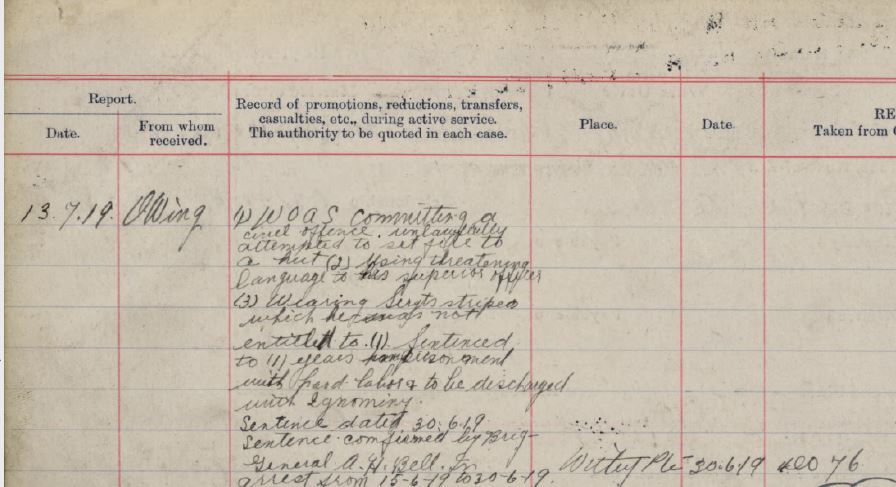 Report.
Date.
From whom
received.
Record of promotions, reductions, transfers,
casualties, etc., during active service.
The authority to be quoted in each case.
Place.
Date.
RE
Taken from
13.7.19. O Wing
(1) W O A S Committing a
civil offence. unlawfully
attempted to set fire to
a hut (2) Using threatening
language to his superior officer
(3) Wearing Sergts stripes
which he was not
entitled to. (1) Sentenced
to (1) years imprisonment
with hard labor & to be discharged
with Ignominy.
Sentence dated 30.6.19
Sentence confirmed by Brig-
General A. H. Bell. In
arrest from 15-6-19 to 30-6-19.
30.6.19
76